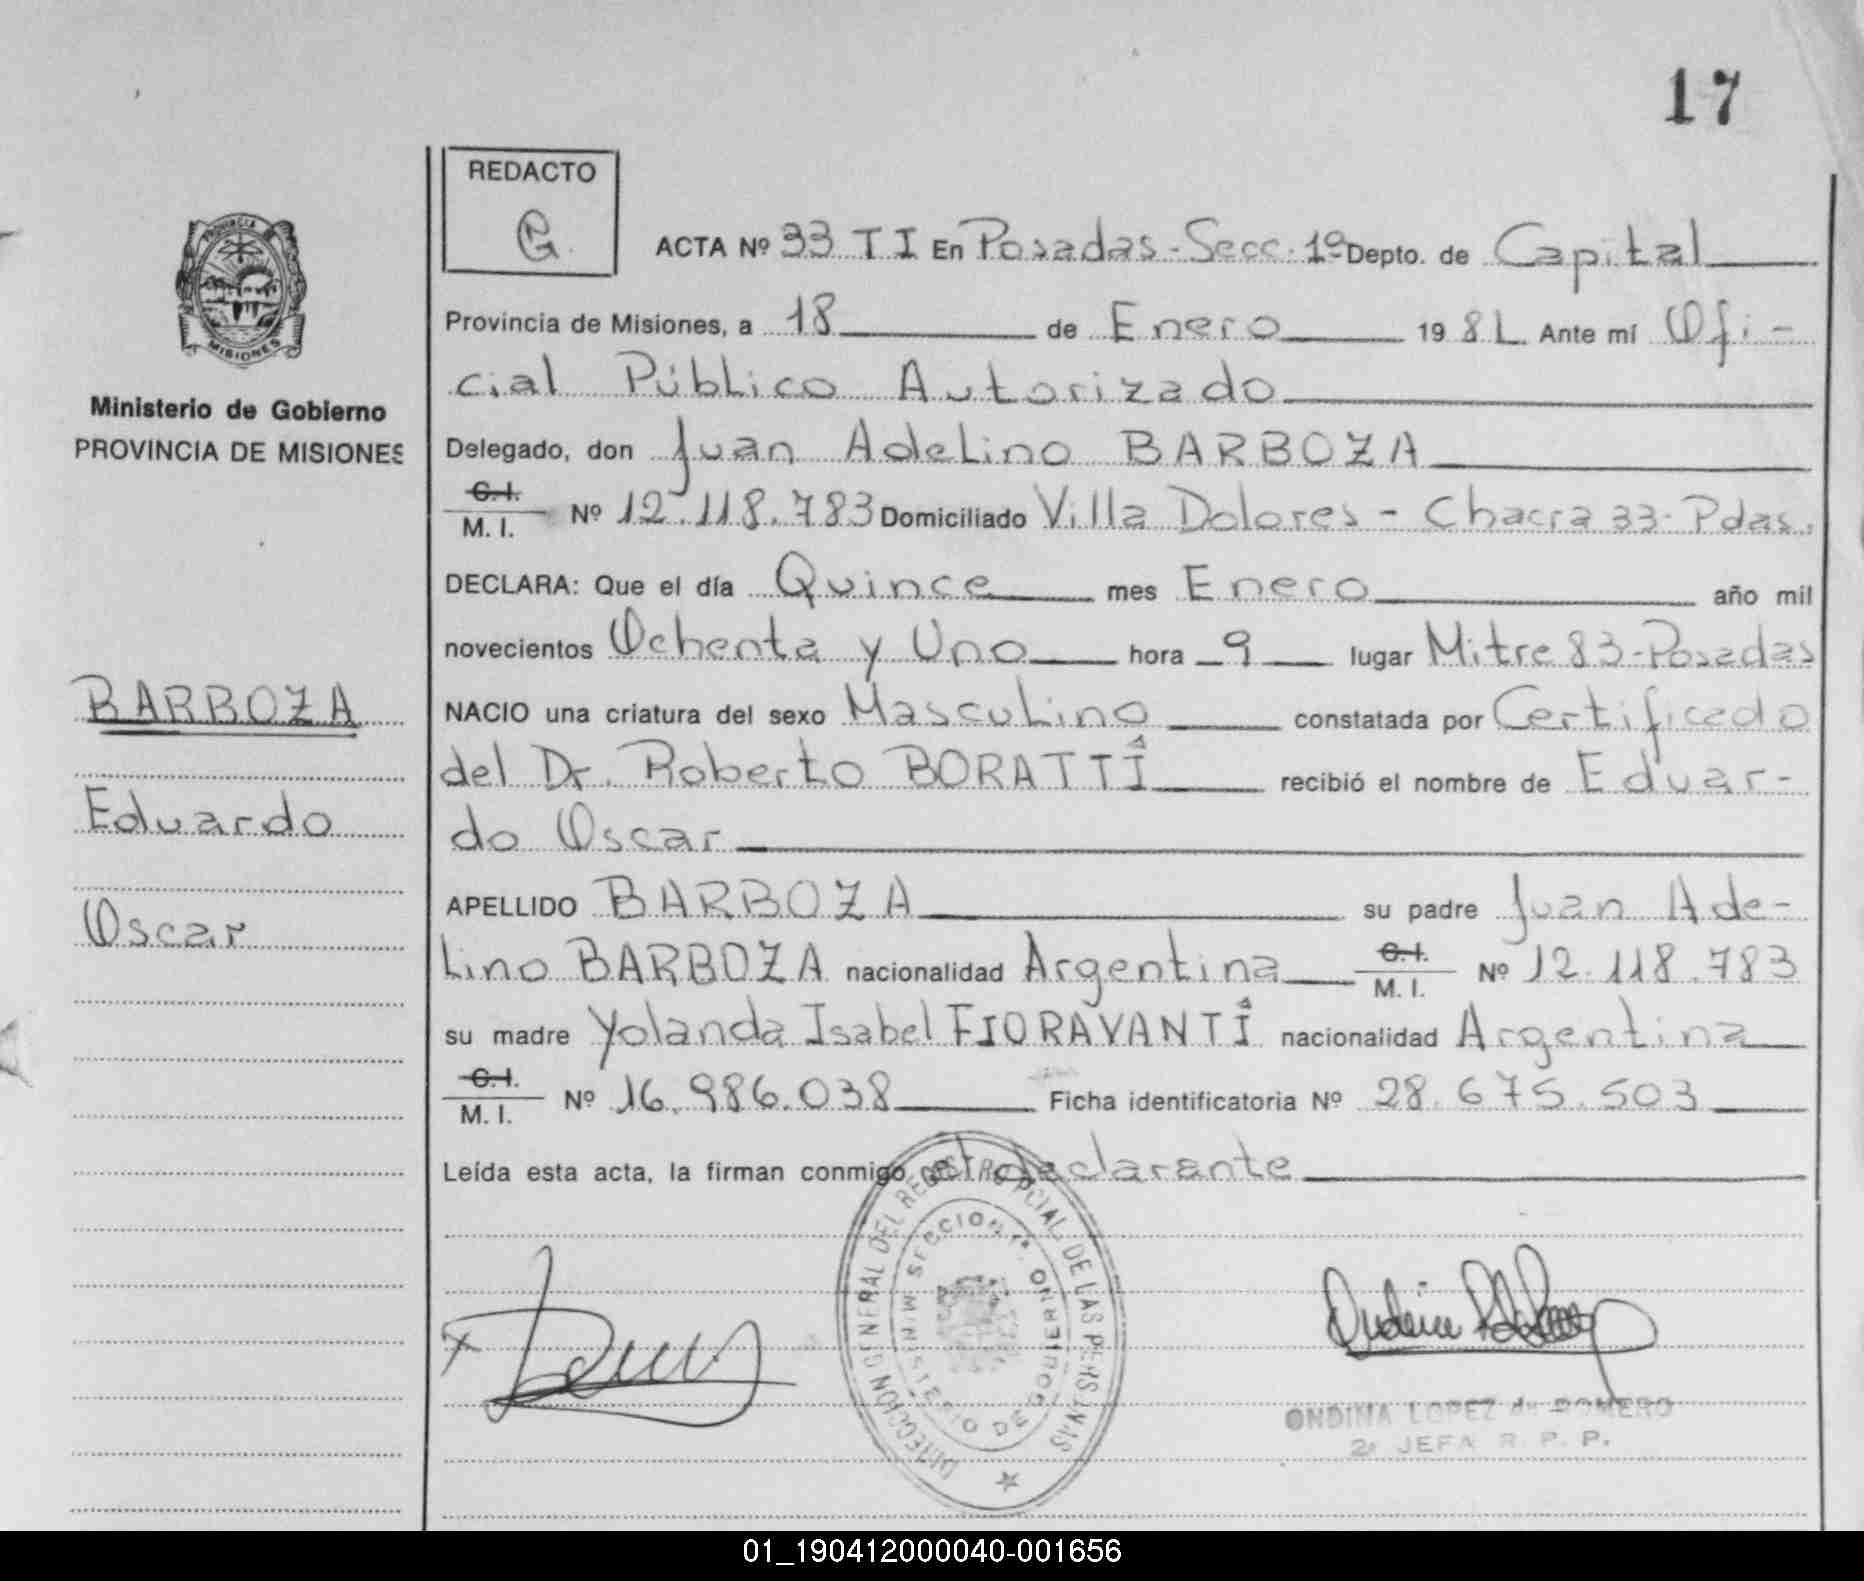 17
REDACTO
G.
ACTA Nº 33 T I En Posadas - Secc. 1º Depto. de Capital
Provincia de Misiones, a 18 de Enero 1981 Ante mí Ofi-
cial Público Autorizado
Delegado, don Juan Adelino BARBOZA
C.I. M.I. Nº 12.118.783 Domiciliado Villa Dolores - Chacra 33- Pdas.
DECLARA: Que el día Quince mes Enero año mil
novecientos Ochenta y Uno hora 9 lugar Mitre 83-Posadas
NACIO una criatura del sexo Masculino constatada por Certificado
del Dr. Roberto BORATTI recibió el nombre de Eduar-
do Oscar
APELLIDO BARBOZA su padre Juan Ade-
lino BARBOZA nacionalidad Argentina C.I. M.I. Nº 12.118.783
su madre Yolanda Isabel FIORAVANTI nacionalidad Argentina
C.I. M.I. Nº 16.986.038 Ficha identificatoria Nº 28.675.503
Leída esta acta, la firman conmigo el declarante
PROVINCIA DE
MISIONES
Ministerio de Gobierno
PROVINCIA DE MISIONES
BARBOZA
Eduardo
Oscar
DIRECCION GENERAL DEL REGISTRO PCIAL. DE LAS PERSONAS
SECCION 1ª.
MINISTERIO DE GOBIERNO
ONDINA LOPEZ de ROMERO
2ª JEFA R. P. P.
01_190412000040-001656